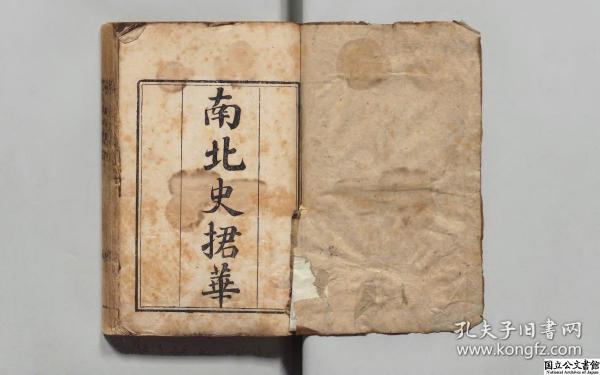 南北史捃華
孔夫子旧書网
www.kongfz.com
国立公文書館
National Archives of Japan